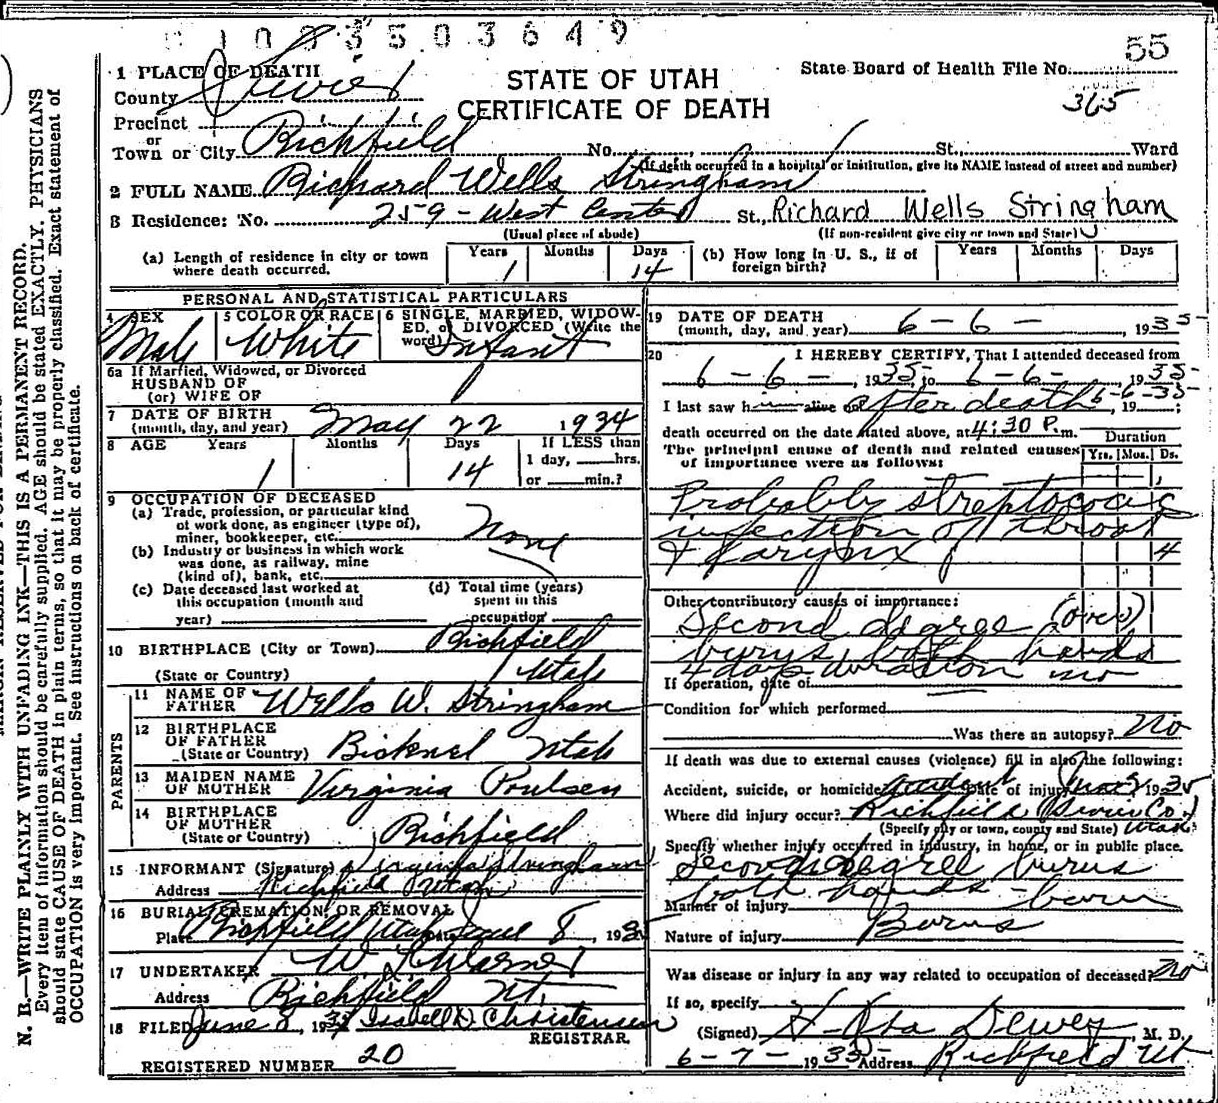 1003503649
55
1 PLACE OF DEATH
County Sevier
STATE OF UTAH
CERTIFICATE OF DEATH
State Board of Health File No.
365
Precinct
or
Town or City Richfield No. , St. Ward
(If death occurred in a hospital or institution, give its NAME instead of street and number)
2 FULL NAME Richard Wells Stringham
3 Residence: No. 259 - West Center St., Richard Wells Stringham
(Usual place of abode) (If non-resident give city or town and State)
(a) Length of residence in city or town where death occurred. Years 1 Months Days 14
(b) How long in U. S., if of foreign birth? Years Months Days
PERSONAL AND STATISTICAL PARTICULARS
4 SEX Male
5 COLOR OR RACE White
6 SINGLE, MARRIED, WIDOWED, or DIVORCED (Write the word) Infant
6a If Married, Widowed, or Divorced
HUSBAND OF
(or) WIFE OF
7 DATE OF BIRTH
(month, day, and year) May 22 1934
8 AGE Years 1 Months Days 14 If LESS than
1 day, hrs.
or min.?
9 OCCUPATION OF DECEASED
(a) Trade, profession, or particular kind
of work done, as engineer (type of),
miner, bookkeeper, etc. None
(b) Industry or business in which work
was done, as railway, mine
(kind of), bank, etc.
(c) Date deceased last worked at
this occupation (month and
year)
(d) Total time (years)
spent in this
occupation
10 BIRTHPLACE (City or Town) Richfield
(State or Country) Utah
PARENTS
11 NAME OF FATHER Wells W. Stringham
12 BIRTHPLACE OF FATHER
(State or Country) Bicknel Utah
13 MAIDEN NAME OF MOTHER Virginia Poulsen
14 BIRTHPLACE OF MOTHER
(State or Country) Richfield
15 INFORMANT (Signature) Virginia Stringham
Address Richfield Utah
16 BURIAL, CREMATION, OR REMOVAL
Place Richfield Utah Date June 8, 1935
17 UNDERTAKER
Address Richfield Ut.
18 FILED June 8, 1935 Isabell D. Christensen
REGISTRAR.
REGISTERED NUMBER 20
19 DATE OF DEATH
(month, day, and year) 6 - 6 - , 1935
20 I HEREBY CERTIFY, That I attended deceased from
6 - 6 - , 1935, to 6 - 6 - , 1935
I last saw him alive on after death 6-6-35, 19 ;
death occurred on the date stated above, at 4:30 P. m.
The principal cause of death and related causes
of importance were as follows:
Duration
Yrs. Mos. Ds.
Probably streptococic
infection of throat
& larynx 4
Other contributory causes of importance:
Second degree (over)
burns both hands
4 days duration no
If operation, date of
Condition for which performed
Was there an autopsy? No
If death was due to external causes (violence) fill in also the following:
Accident, suicide, or homicide? Accident Date of injury June 1935
Where did injury occur? Richfield (Sevier Co.)
(Specify city or town, county and State) Utah
Specify whether injury occurred in industry, in home, or in public place.
Second degree burns
both hands - burn
Manner of injury
Nature of injury Burns
Was disease or injury in any way related to occupation of deceased? No
If so, specify
(Signed) Dewey, M. D.
6 - 7 - 1935 Address Richfield Ut
N. B.—WRITE PLAINLY WITH UNFADING INK—THIS IS A PERMANENT RECORD.
Every item of information should be carefully supplied. AGE should be stated EXACTLY. PHYSICIANS
should state CAUSE OF DEATH in plain terms, so that it may be properly classified. Exact statement of
OCCUPATION is very important. See instructions on back of certificate.